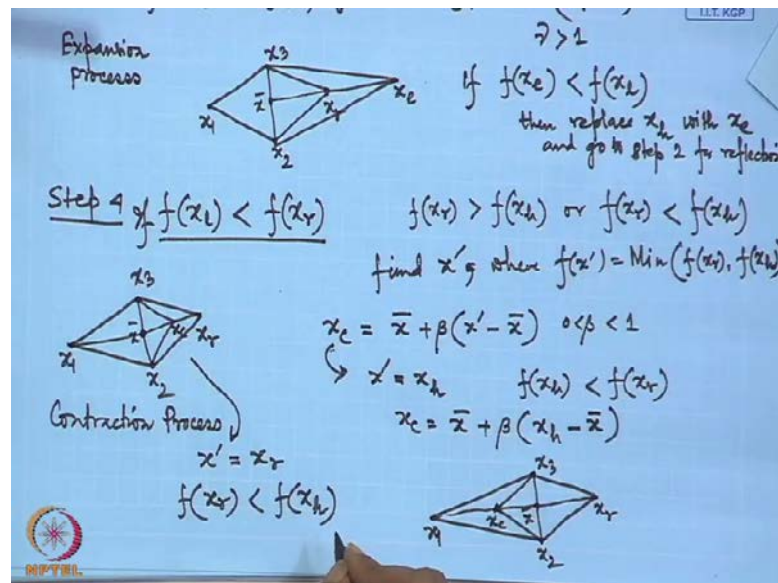 I.I.T. KGP
γ > 1
Expansion
process
x3
x̄
x1
xr
xe
x2
If f(xe) < f(xh)
then replace xh with xe
and go to step 2 for reflection
Step 4 If f(xl) < f(xr)
f(xr) > f(xh) or f(xr) < f(xh)
find x', where f(x') = Min (f(xr), f(xh)
x3
x̄
xc
xr
x1
x2
xc = x̄ + β(x' - x̄) 0<β<1
x' = xh f(xh) < f(xr)
xc = x̄ + β(xh - x̄)
Contraction Process
x' = xr
f(xr) < f(xh)
x3
xc
x̄
xr
x1
x2
NPTEL